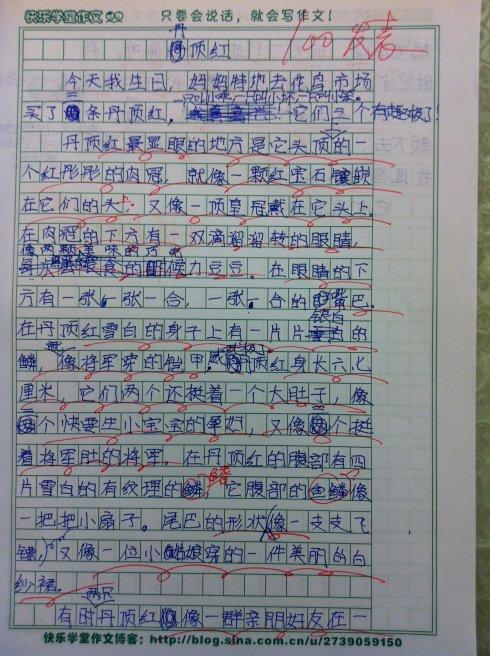 快乐学堂作文 只要会说话，就会写作文！
丹顶红 100 发表
今天我生日，妈妈特地去花鸟市场
买了条丹顶红，它们三个有趣极了！
丹顶红最显眼的地方是它头顶的一
个红彤彤的肉冠，就像一颗红宝石镶嵌
在它们的头上，又像一顶皇冠戴在它头上。
在肉冠的下方有一双滴溜溜转的眼睛，
像两颗美味的巧克
力豆豆。在眼睛的下
方有一张一张一合，一张一合的嘴巴。
在丹顶红雪白的身子上有一片片银白的
鳞，像将军穿的铠甲，丹顶红身长六七
厘米，它们两个还挺着一个大肚子，像
个快要生小宝宝的孕妇，又像个挺
着将军肚的将军。在丹顶红的腹部有四
片雪白的有纹理的鳍，它腹部的鱼鳞像
一把把小扇子。尾巴的形状像一支支飞
镖，又像一位小姑娘穿的一件美丽的白
纱裙。
有时两只丹顶红像一群亲朋好友在一
快乐学堂作文博客：http://blog.sina.com.cn/u/2739059150